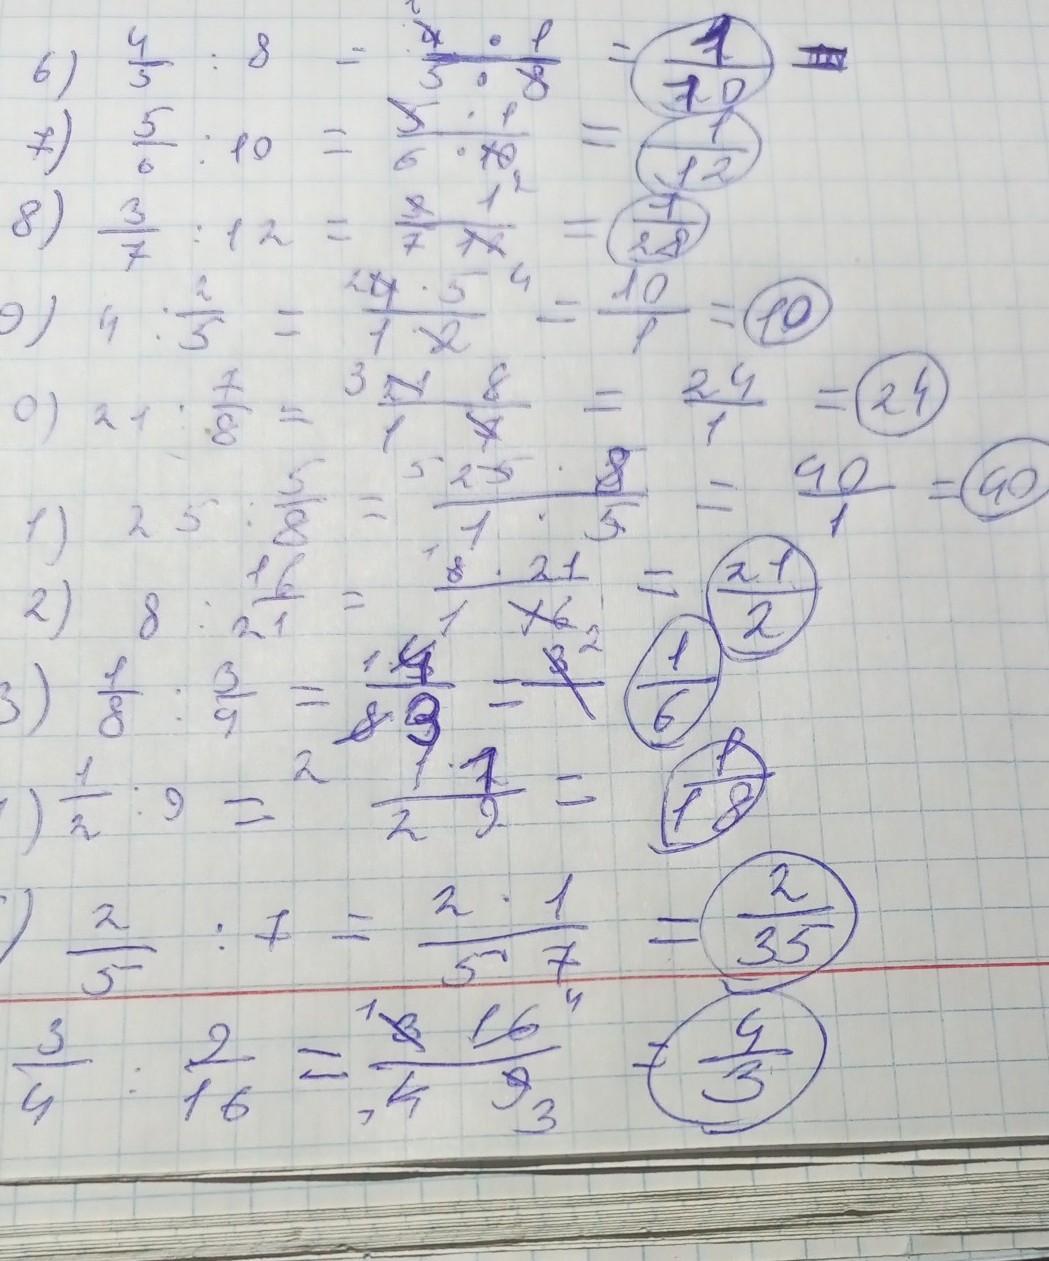 6) 4/5 : 8 = 4 · 1 / 5 · 8 = 1/10
7) 5/6 : 10 = 5 · 1 / 6 · 10 = 1/12
8) 3/7 : 12 = 3 1 / 7 12 = 1/28
9) 4 : 2/5 = 4 · 5 / 1 2 = 10/1 = 10
0) 21 : 7/8 = 21 8 / 1 7 = 24/1 = 24
1) 25 : 5/8 = 25 · 8 / 1 · 5 = 40/1 = 40
2) 8 : 16/21 = 8 · 21 / 1 16 = 21/2
3) 1/8 : 3/4 = 1 4 / 8 3 = 1/6
) 1/2 : 9 = 1 · 1 / 2 9 = 1/18
) 2/5 : 7 = 2 · 1 / 5 7 = 2/35
3/4 : 9/16 = 3 16 / 4 9 = 4/3